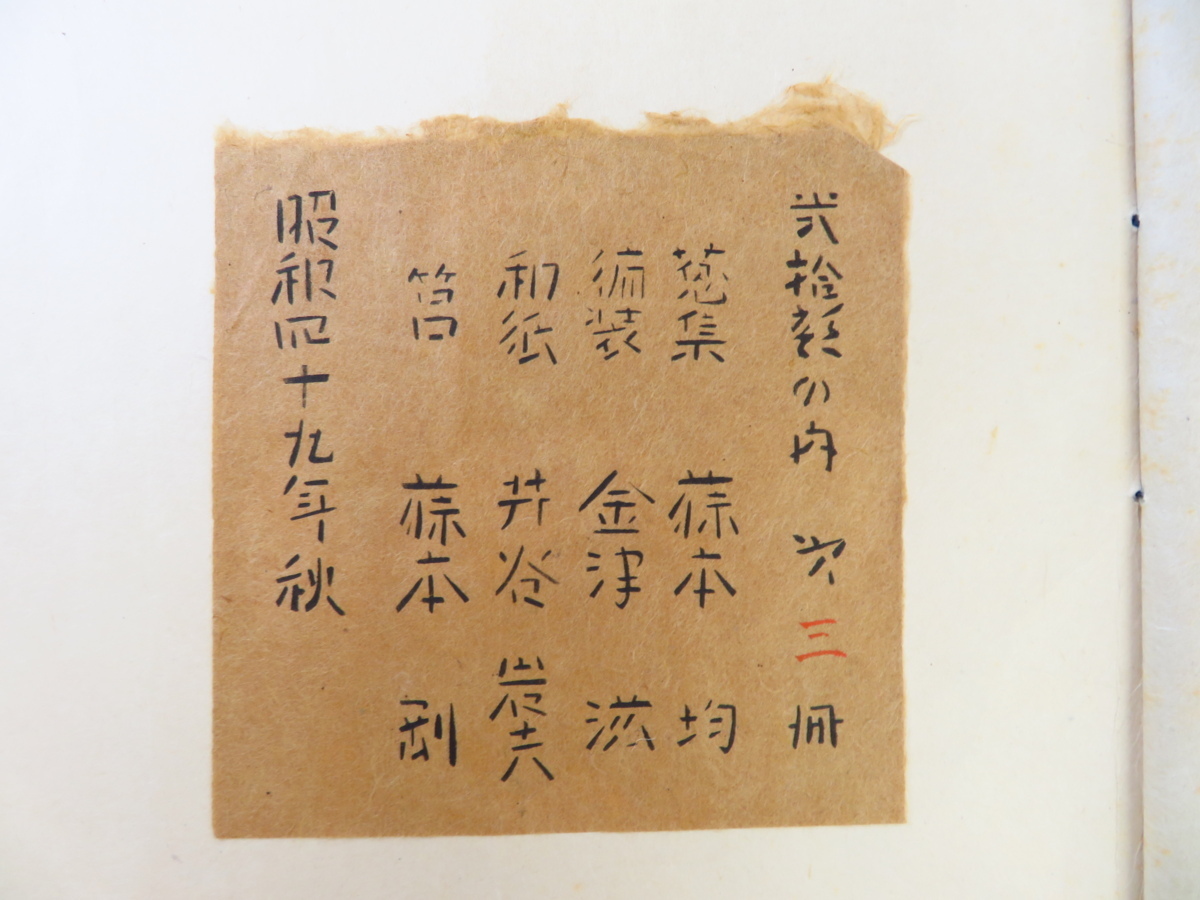 弐拾 の内 三冊
蒐集 藤本 均
編装 金津 滋
和紙 井谷 岩夫
筥 藤本 剛
昭和四十九年秋